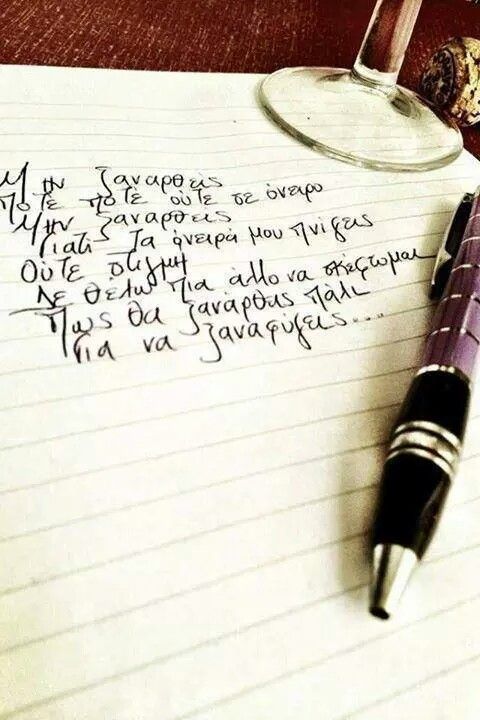 Μην ξαναρθεις
Ποτέ ποτέ ούτε σε όνειρο
Μην ξαναρθεις
Γιατί τα όνειρά μου πνίγεις
Ούτε στιγμή
Δε θέλω πια άλλο να σκέφτομαι
Πως θα ξαναρθεις πάλι
Για να ξαναφύγεις...